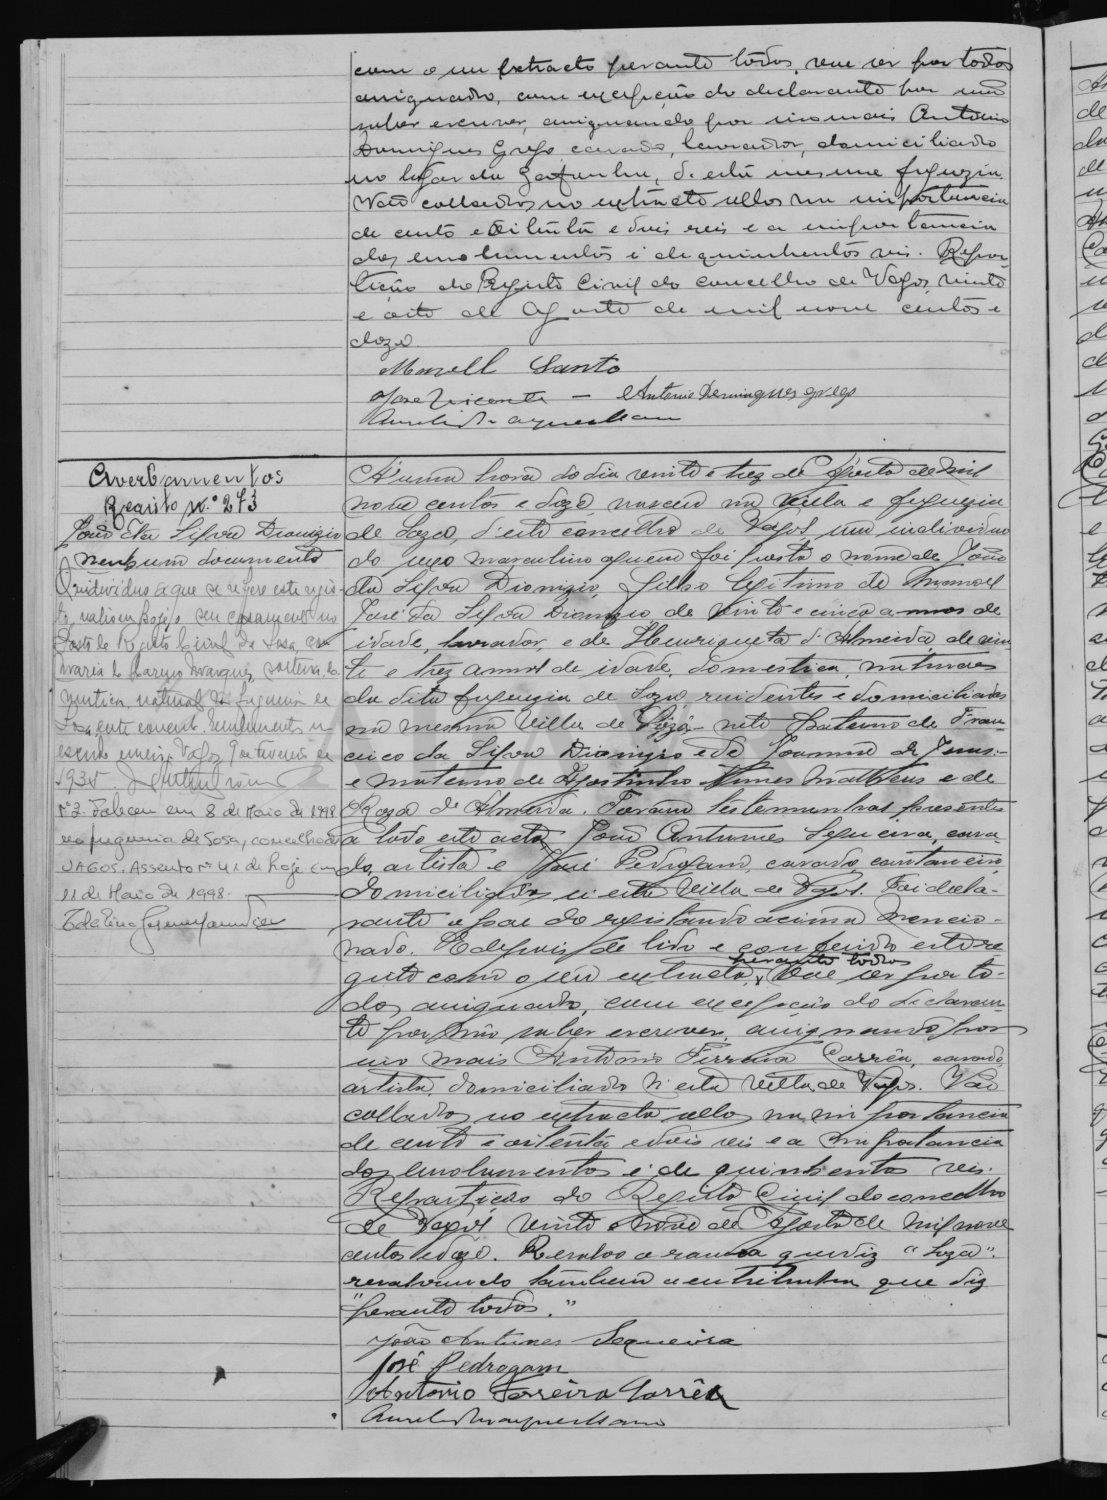 com o seu extracto perante todos, vae ser por todos
assignado, com excepção do declarante por não
saber escrever, assignando por si o mais Antonio
Domingues Grego casado, lavrador, domiciliado
no logar da Gafanha, d'esta mesma freguezia.
Vão collados no extracto sellos na importancia
de cento e oitenta e dois reis e a importancia
dos emolumentos é de quinhentos reis. Repar-
tição do Registo Civil do concelho de Vagos, vinte
e oito de Agosto de mil nove centos e
doze.
Manoel Santo
José Vicente — Antonio Domingues grego
Averbamentos
Registo Nº 273
João da Silva Dionizio
nenhum documento
O individuo a que se refere este regis-
to, realisou hoje o seu casamento no
Posto do Registo Civil de Sosa, com
Maria do Carmo Marques, solteira, do-
mestica, natural da freguesia de
Sosa, deste concelho.
Vagos
1935.
Nº 2. Faleceu em 8 de Maio de 1998
na freguesia de Sosa, concelho de
VAGOS. Assento nº 41 de hoje. Em
11 de Maio de 1998.
Á uma hora do dia vinte e trez de Agosto de mil
nove centos e doze, nasceu na villa e freguezia
de Soza, d'este concelho de Vagos, um individuo
do sexo masculino a quem foi posto o nome de João
da Silva Dionizio, filho legitimo de Manoel
José da Silva Dionizio de vinte e cinco annos de
idade, lavrador, e de Henriqueta d'Almeida de vin-
te e trez annos de idade, domestica, naturaes
da dita freguezia de Soza, residentes e domiciliados
na mesma villa de Soza, neto paterno de Fran-
cisco da Silva Dionizio e de Joanna de Jesus
e materno de Agostinho Nunes Matheus e de
Roza de Almeida. Foram testemunhas presentes
a todo este acto, João Antunes Sequeira, casa-
do, artista e José Pedrogam, casado, cantoneiro,
domiciliados n'esta villa de Vagos. Foi decla-
rante o pae do registando acima mencio-
nado. E depois de lido e conferido este re-
perante todos
gisto com o seu extracto, vae ser por to-
dos assignado, com excepção do declaran-
te por não saber escrever, assignando por
si o mais Antonio Ferreira Corrêa, casado,
artista, domiciliado n'esta villa de Vagos. Vão
collados no extracto sellos na importancia
de cento e oitenta e dois reis e a importancia
dos emolumentos é de quinhentos reis.
Repartição do Registo Civil do concelho
de Vagos vinte e nove de Agosto de mil nove
centos e doze. Resalvo a rasura que diz "Soza".
resalvando tambem a entrelinha que diz
"perante todos."
João Antunes Sequeira
José Pedrogam
Antonio Ferreira Corrêa